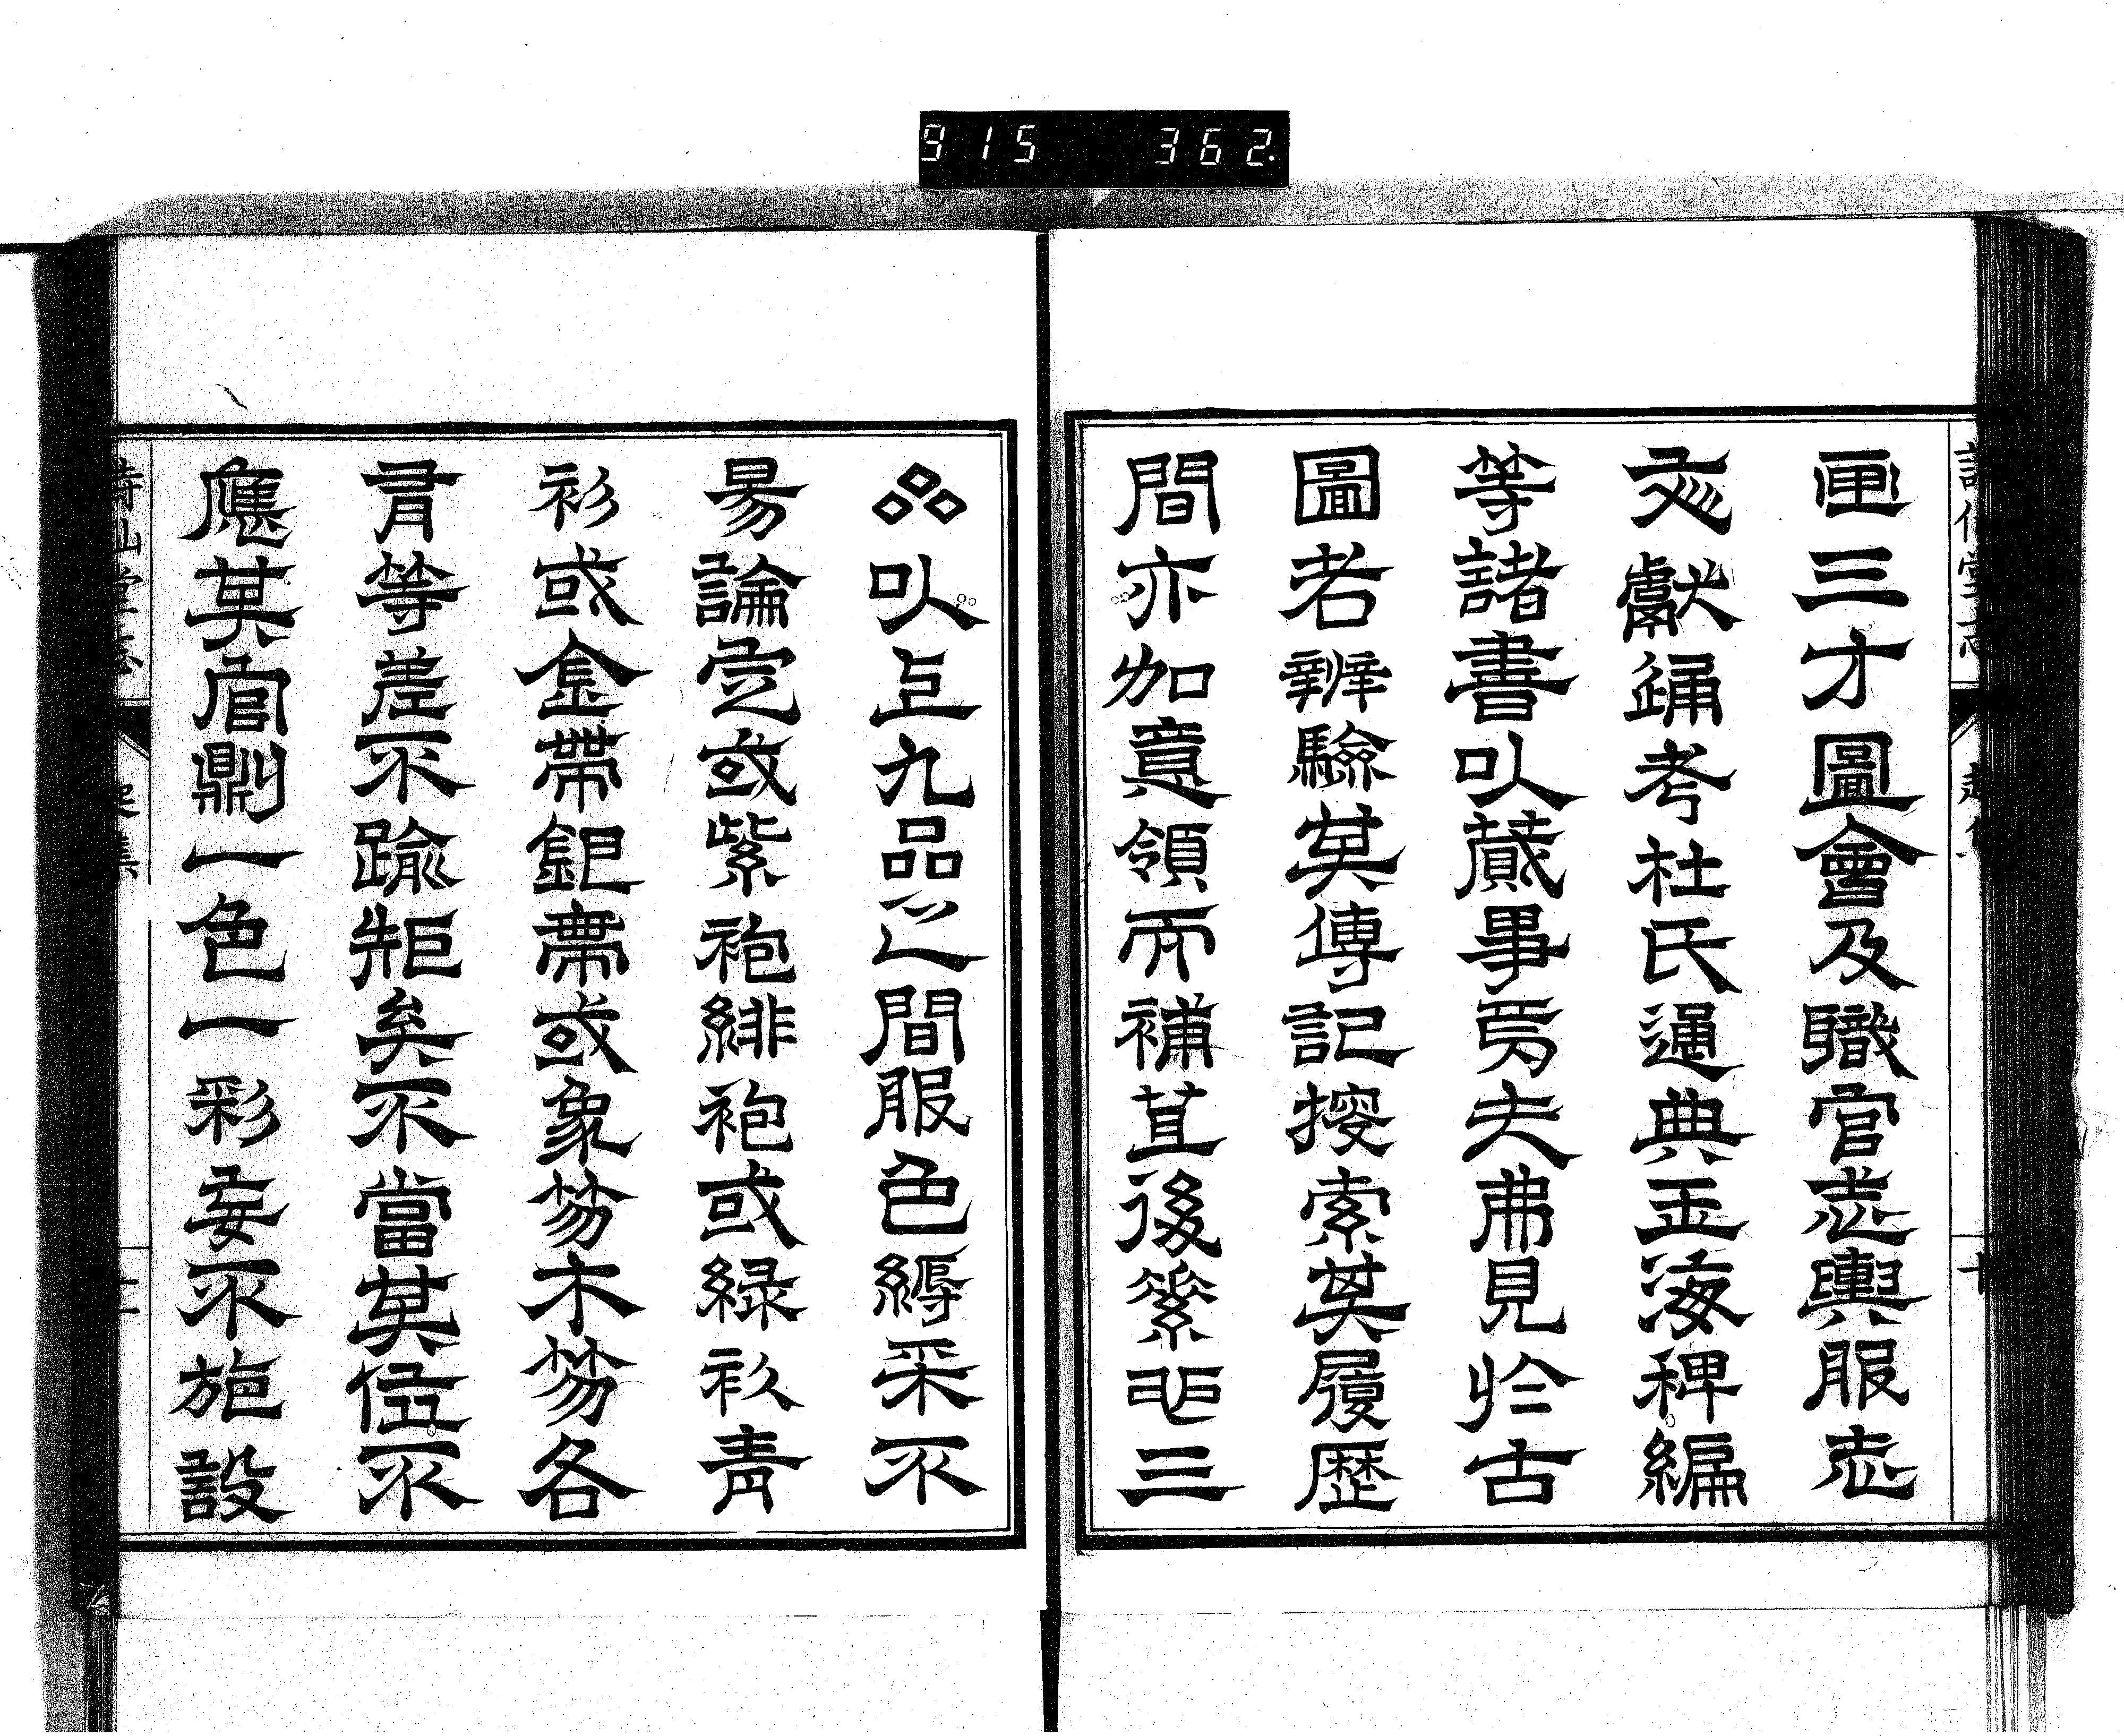 915 362.
画三才圖會及職官志輿服志
文獻通考杜氏通典玉海稗編
等諸書以蕆事焉夫弗見於古
圖者辨驗其傳記搜索其履歷
間亦加意領而補苴後素非三
品以上九品之間服色縟采不
易論定或紫袍緋袍或緑衫青
衫或金帶銀帶或象笏木笏各
有等差不踰矩矣不當其位不
應其官則一色一彩妄不施設
詩仙堂志